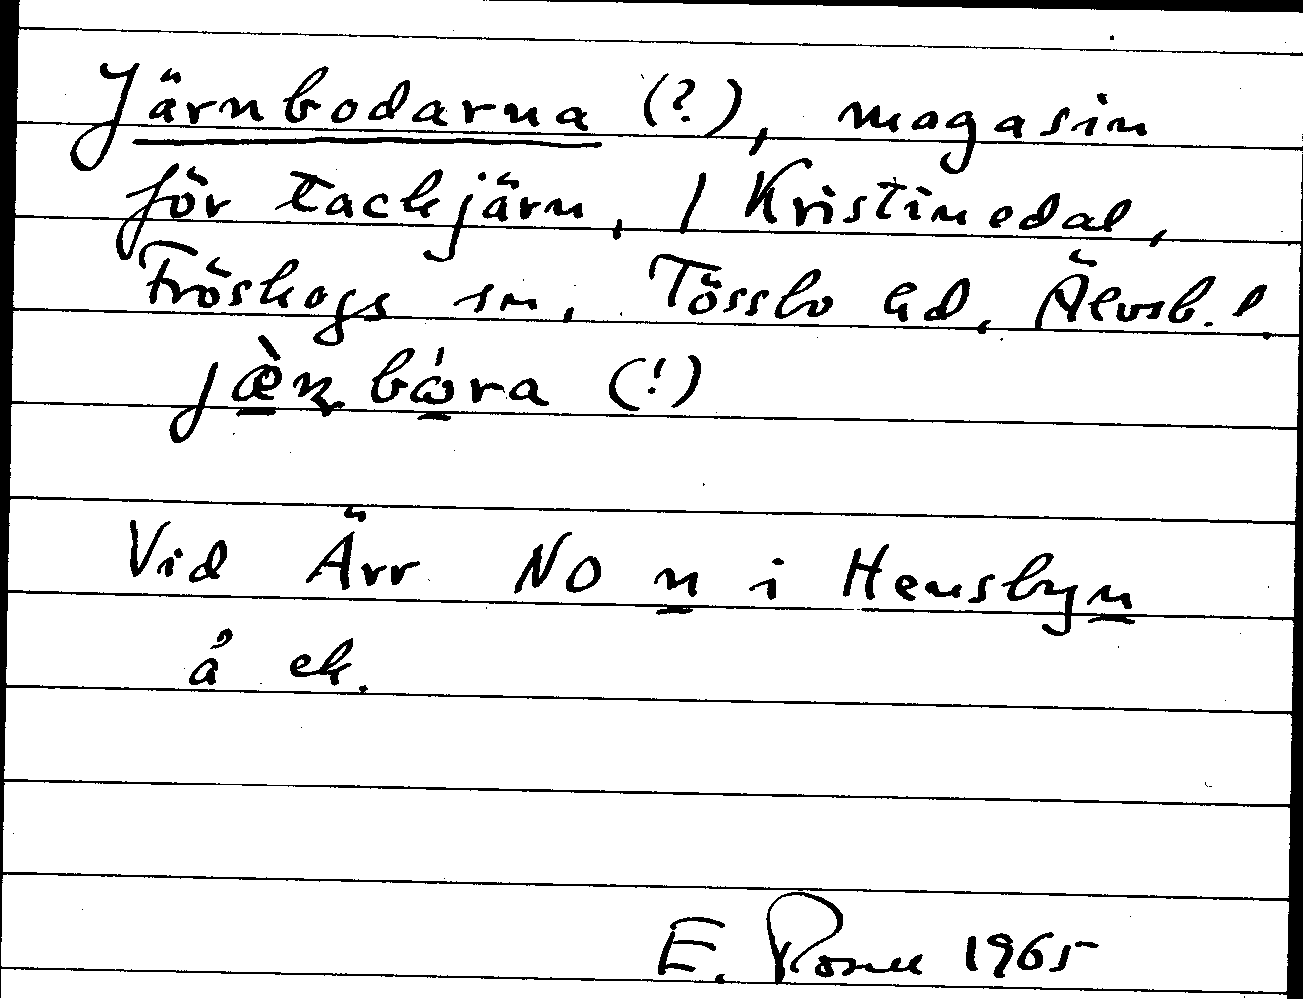 Järnbodarna (?), magasin
för tackjärn, / Kristinedal,
Fröskogs sn, Tössbo hd, Älvsb. l.
jæ̀ɳbɷ́ra (!)
Vid Ärr NO n i Hensbyn
å ek.
E. 1965